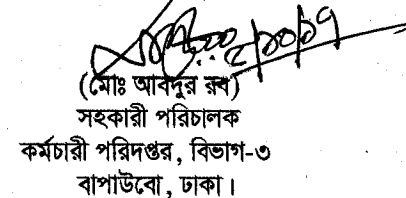 ৫/১০/১৭
(মোঃ আবদুর রব)
সহকারী পরিচালক
কর্মচারী পরিদপ্তর, বিভাগ-৩
বাপাউবো, ঢাকা।